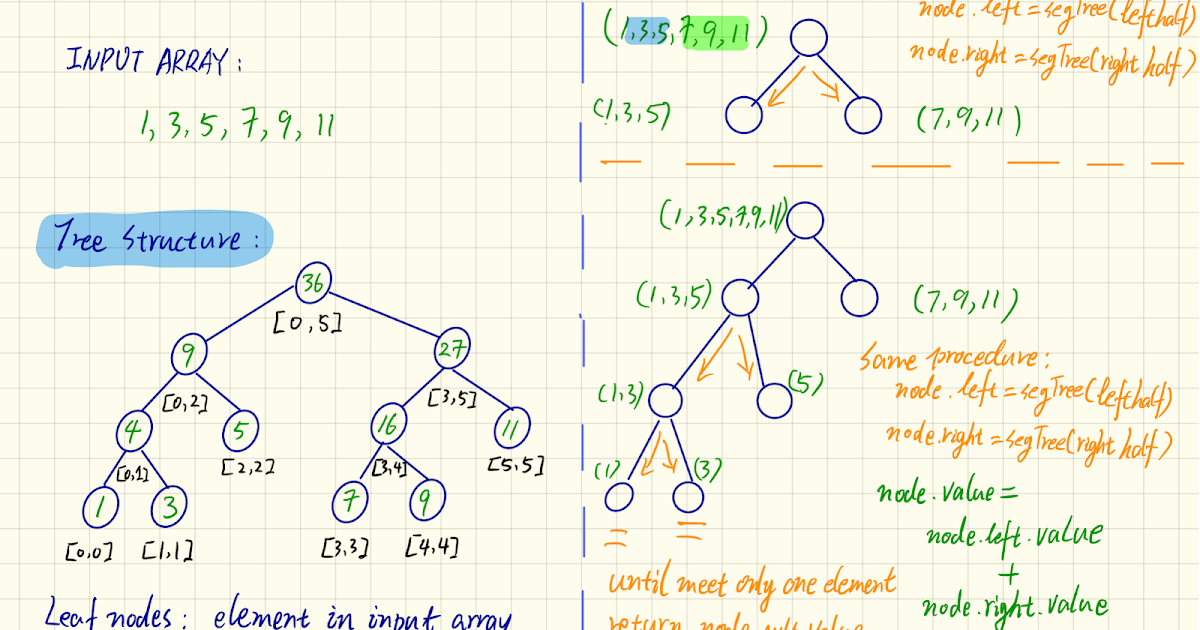 INPUT ARRAY:
1, 3, 5, 7, 9, 11
Tree Structure:
36
[0,5]
9
27
[0,2]
[3,5]
4
5
16
11
[0,1]
[2,2]
[3,4]
[5,5]
1
3
7
9
[0,0]
[1,1]
[3,3]
[4,4]
Leaf nodes: element in input array
(1,3,5,7,9,11)
node.left = segTree(lefthalf)
node.right = segTree(right half)
(1,3,5)
(7,9,11)
(1,3,5,7,9,11)
(1,3,5)
(7,9,11)
(1,3)
(5)
(1)
(3)
Same procedure:
node.left = segTree(lefthalf)
node.right = segTree(right half)
node.value =
node.left.value
+
node.right.value
until meet only one element
return node
value